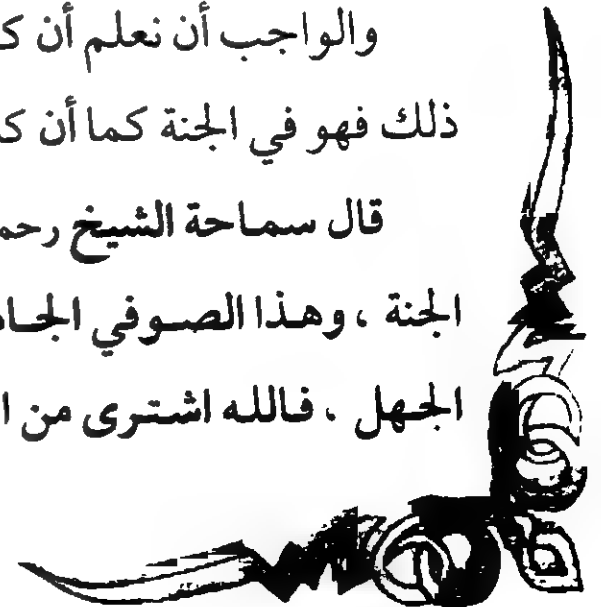 والواجب أن نعلم أن
ذلك فهو في الجنة كما أن
قال سماحة الشيخ
الجنة ، وهذا الصوفي
الجهل ، فالله اشترى من